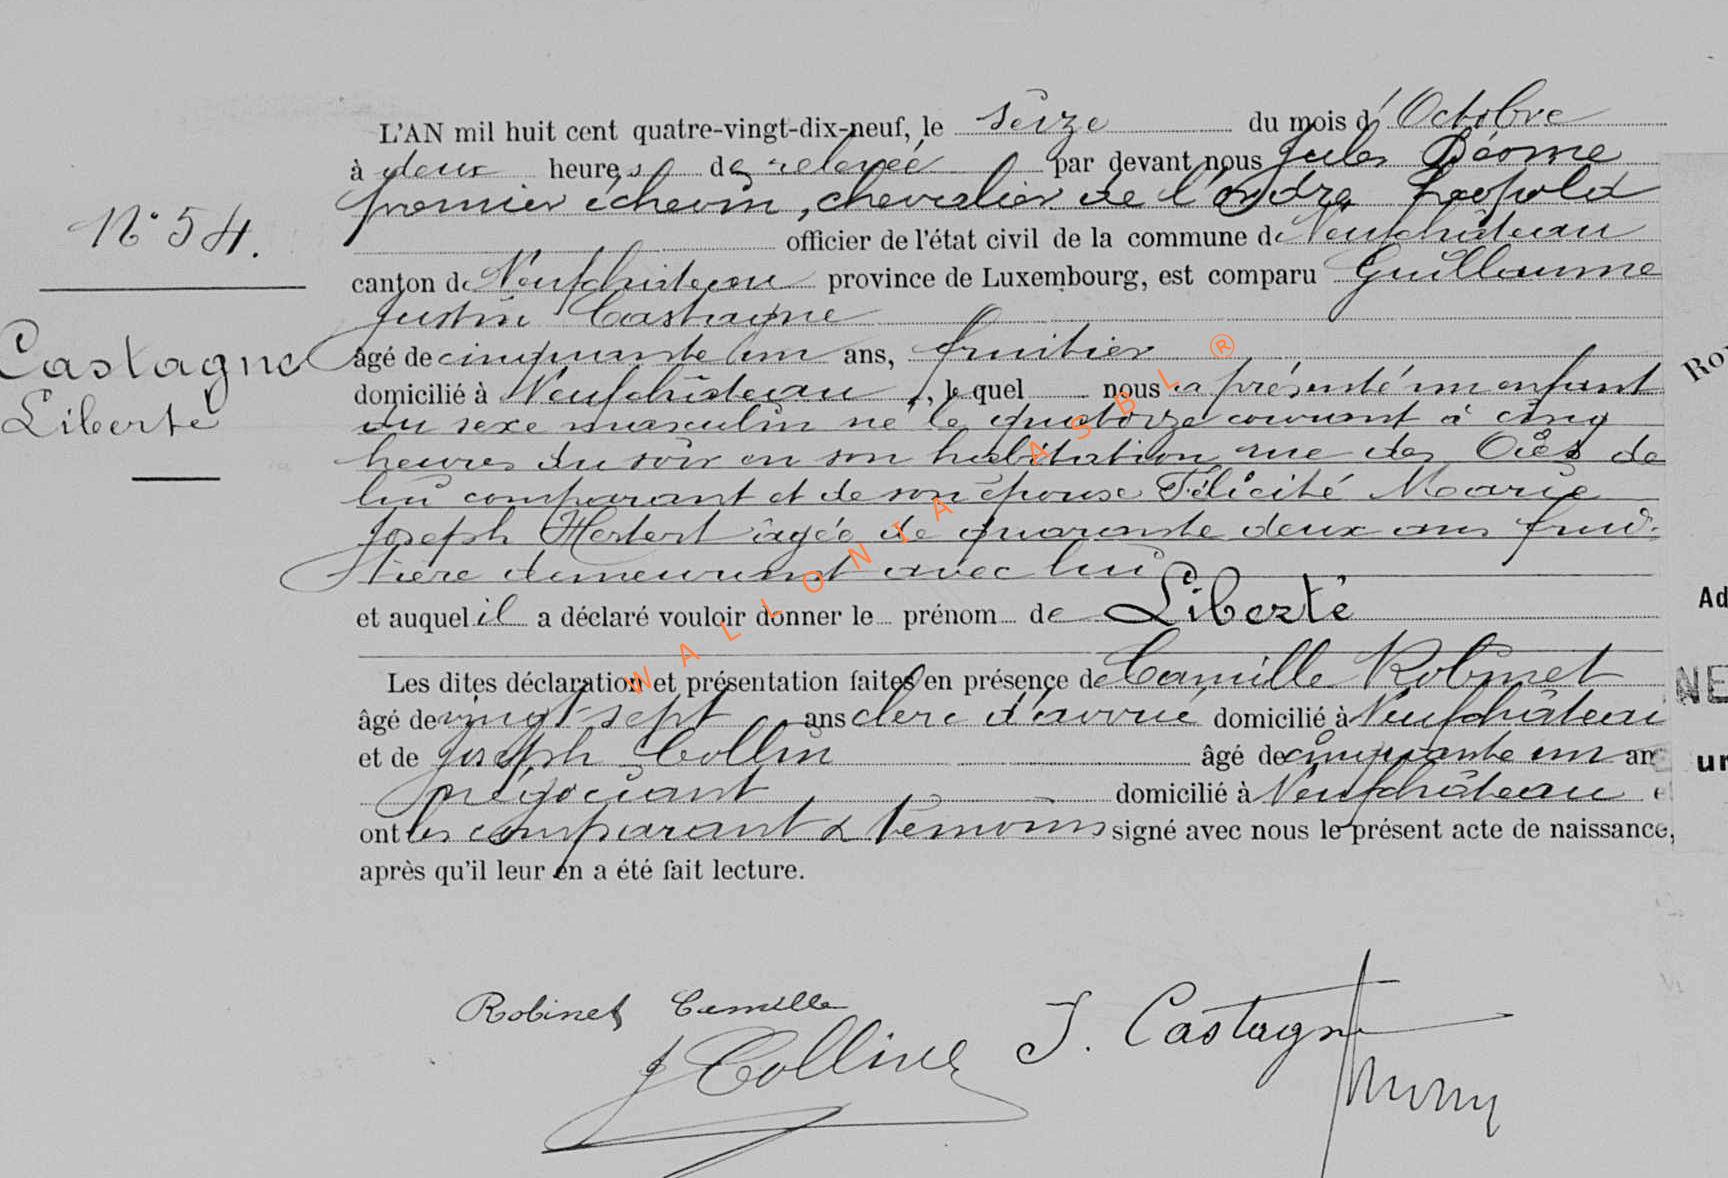 L'AN mil huit cent quatre-vingt-dix-neuf, le seize du mois d'Octobre
à deux heures de relevée par devant nous Jules
premier échevin, chevalier de l'ordre Léopold
N° 54.
officier de l'état civil de la commune de Neufchâteau
canton de Neufchâteau province de Luxembourg, est comparu Guillaume
Justin Castagne
Castagne
Liberté
âgé de cinquante un ans, fruitier
domicilié à Neufchâteau, lequel nous a présenté un enfant
du sexe masculin né le quatorze courant à cinq
heures du soir en son habitation rue des Oies de
lui comparant et de son épouse Félicité Marie
Joseph Herbert âgée de quarante deux ans frui-
tière demeurant avec lui
et auquel il a déclaré vouloir donner le prénom de Liberté
Les dites déclaration et présentation faites en présence de Camille Robinet
âgé de vingt sept ans clerc d'avoué domicilié à Neufchâteau
et de Joseph Collin âgé de cinquante un an
négociant domicilié à Neufchâteau e
ont les comparant & témoins signé avec nous le présent acte de naissance,
après qu'il leur en a été fait lecture.
Robinet Camille
J Colline J. Castagne
WALLONIA ASBL ®
Ro
Ad
NE
un